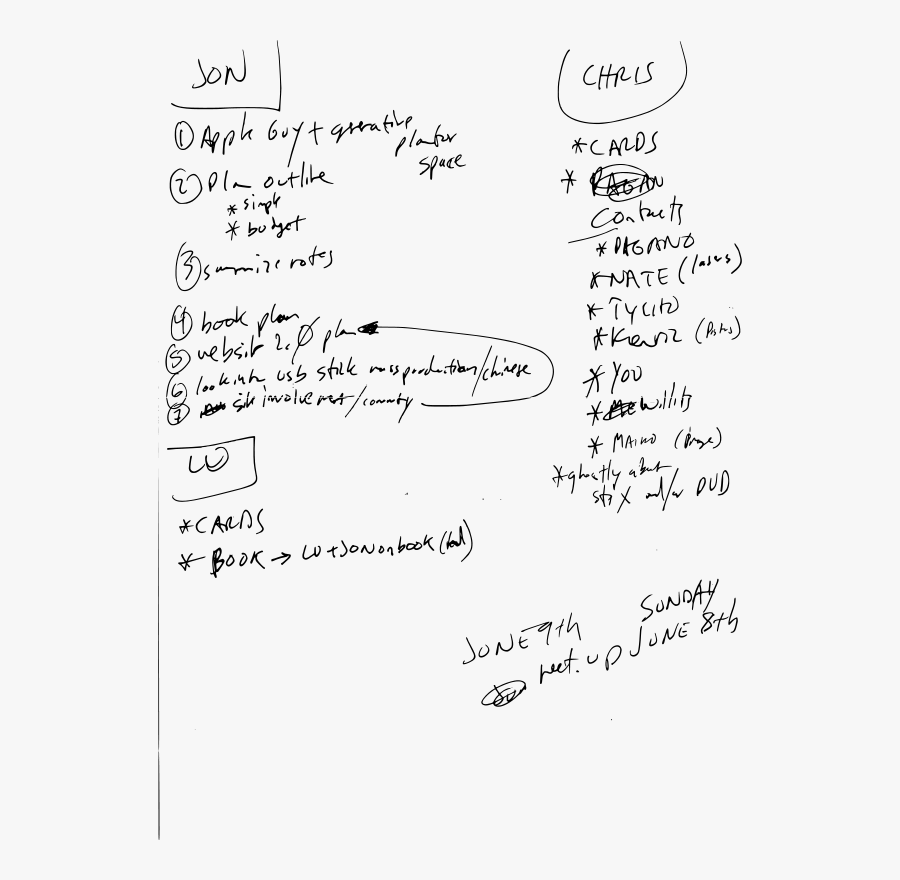 JON
① Apple Guy + generative
plan for
space
② Plan outline
* simple
* budget
③ summize notes
④ book plan
⑤ website 2.0 plan
⑥ look into usb stick mass production/chinese
⑦ involvement/
LU
* CARDS
* BOOK → LU + JON on book (
CHRIS
* CARDS
*
Contacts
* PAGANO
* NATE (lasers)
*
*
* YOU
* Willits
*
* ghostly about
stix and/or DVD
SUNDAY
JUNE 9th
meet.up JUNE 8th